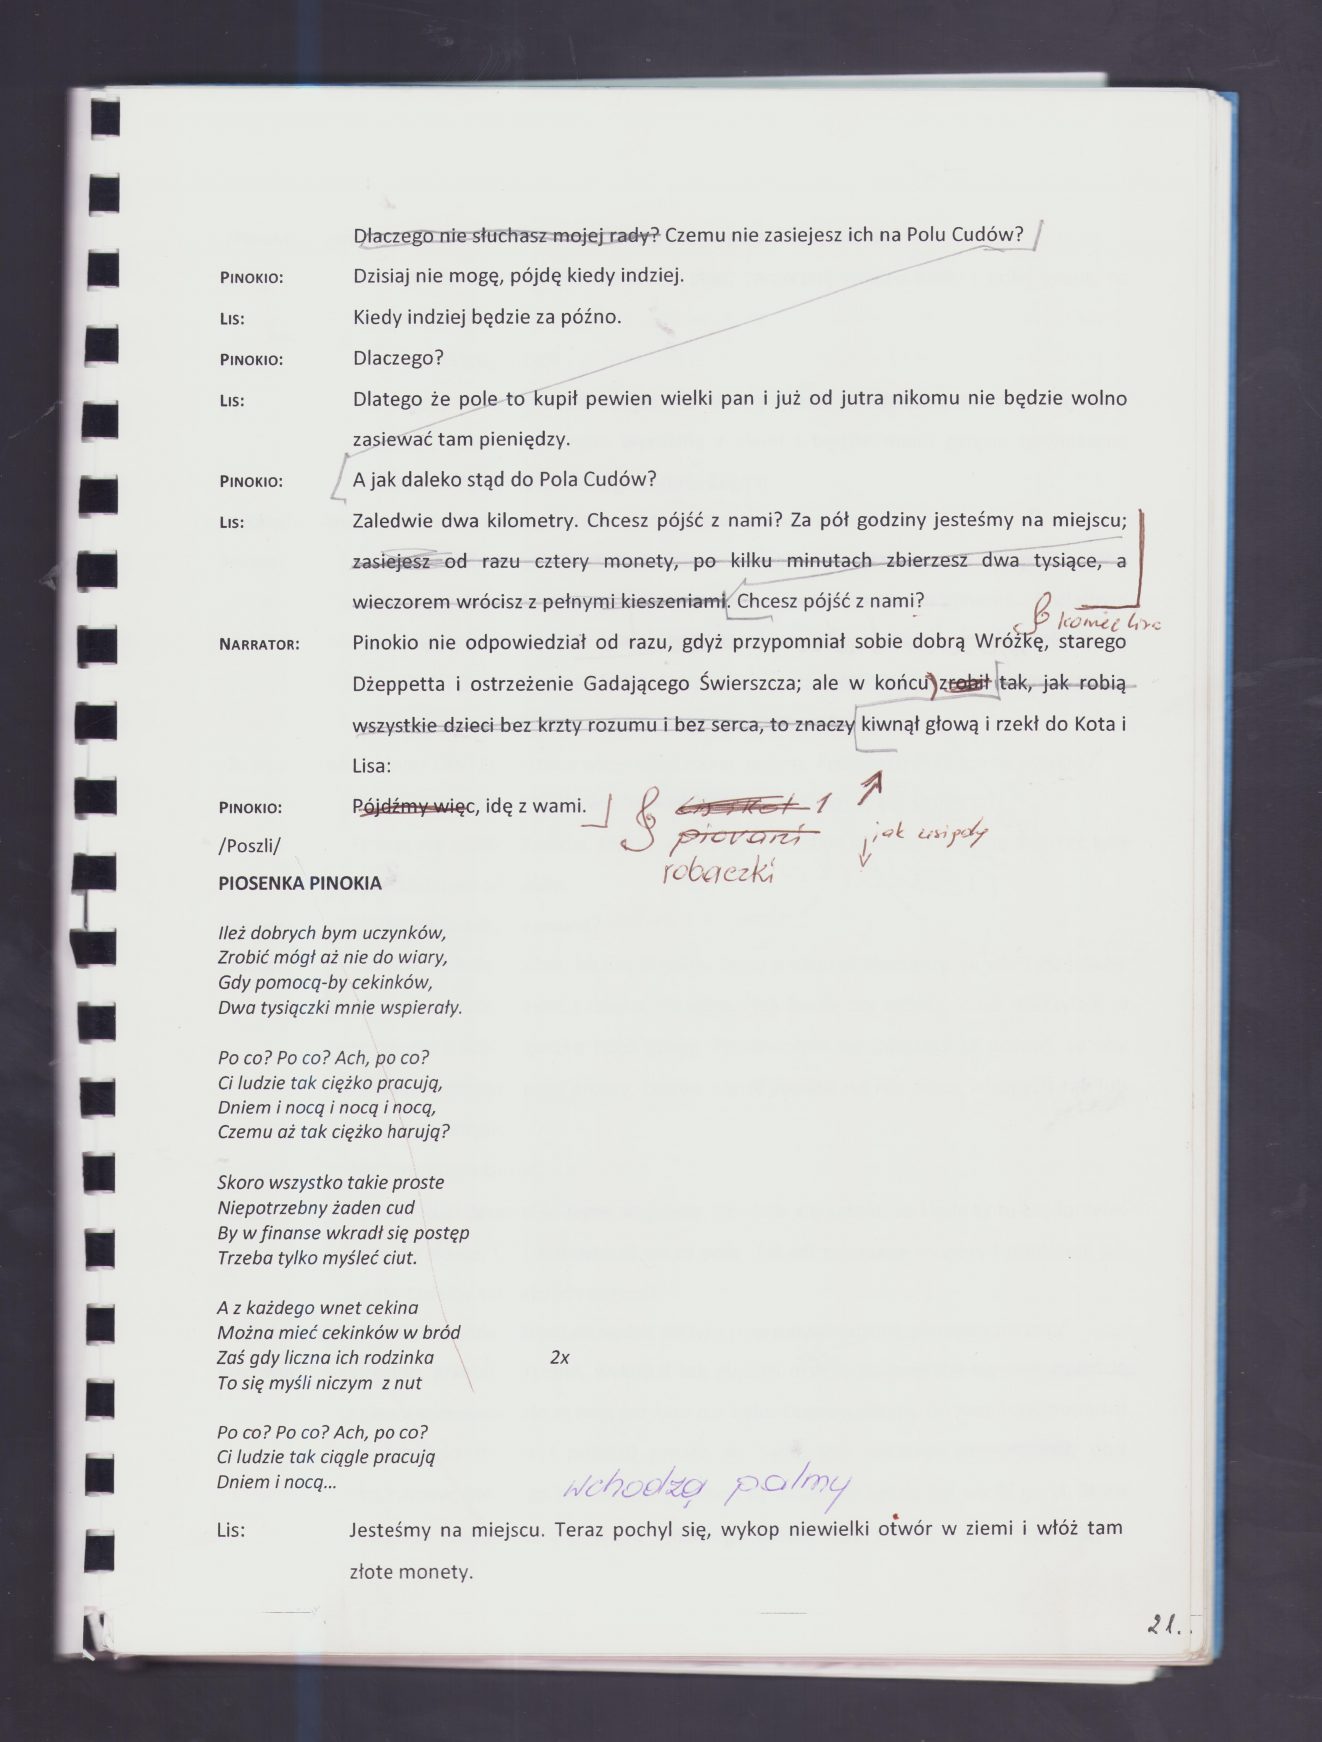 Dlaczego nie słuchasz mojej rady? Czemu nie zasiejesz ich na Polu Cudów?
PINOKIO: Dzisiaj nie mogę, pójdę kiedy indziej.
LIS: Kiedy indziej będzie za późno.
PINOKIO: Dlaczego?
LIS: Dlatego że pole to kupił pewien wielki pan i już od jutra nikomu nie będzie wolno
zasiewać tam pieniędzy.
PINOKIO: A jak daleko stąd do Pola Cudów?
LIS: Zaledwie dwa kilometry. Chcesz pójść z nami? Za pół godziny jesteśmy na miejscu;
zasiejesz od razu cztery monety, po kilku minutach zbierzesz dwa tysiące, a
wieczorem wrócisz z pełnymi kieszeniami. Chcesz pójść z nami?
koniec lisa
NARRATOR: Pinokio nie odpowiedział od razu, gdyż przypomniał sobie dobrą Wróżkę, starego
Dżeppetta i ostrzeżenie Gadającego Świerszcza; ale w końcu zrobił tak, jak robią
wszystkie dzieci bez krzty rozumu i bez serca, to znaczy kiwnął głową i rzekł do Kota i
Lisa:
PINOKIO: Pójdźmy więc, idę z wami. 1
/Poszli/ jak
robaczki
PIOSENKA PINOKIA
Ileż dobrych bym uczynków,
Zrobić mógł aż nie do wiary,
Gdy pomocą-by cekinków,
Dwa tysiączki mnie wspierały.
Po co? Po co? Ach, po co?
Ci ludzie tak ciężko pracują,
Dniem i nocą i nocą i nocą,
Czemu aż tak ciężko harują?
Skoro wszystko takie proste
Niepotrzebny żaden cud
By w finanse wkradł się postęp
Trzeba tylko myśleć ciut.
A z każdego wnet cekina
Można mieć cekinków w bród
Zaś gdy liczna ich rodzinka 2x
To się myśli niczym z nut
Po co? Po co? Ach, po co?
Ci ludzie tak ciągle pracują
Dniem i nocą...
wchodzą palmy
Lis: Jesteśmy na miejscu. Teraz pochyl się, wykop niewielki otwór w ziemi i włóż tam
złote monety.
21.